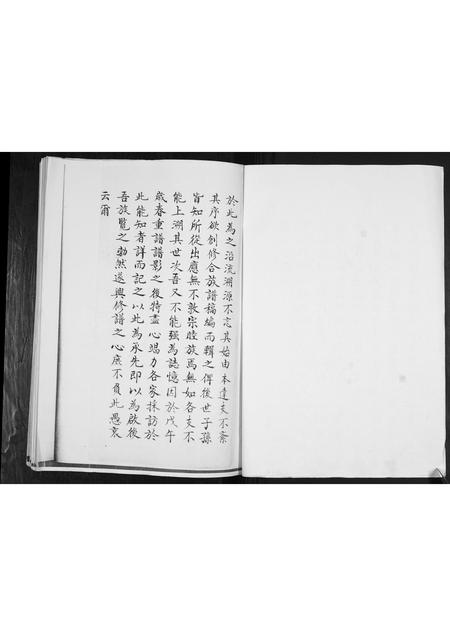 於此為之沿流溯源不忘其始由本達支不紊
其序欲創修合族譜稿編而輯之俾後世子孫
皆知所從出應無不敦宗睦族焉無如各支不
能上溯其世次吾又不能強為誌憶因於戊午
歲春重譜譜影之後特盡心竭力各家採訪於
此能知者詳而記之以此為承先即以為啟後
吾族覽之勃然遂興修譜之心庶不負此愚衷
云爾